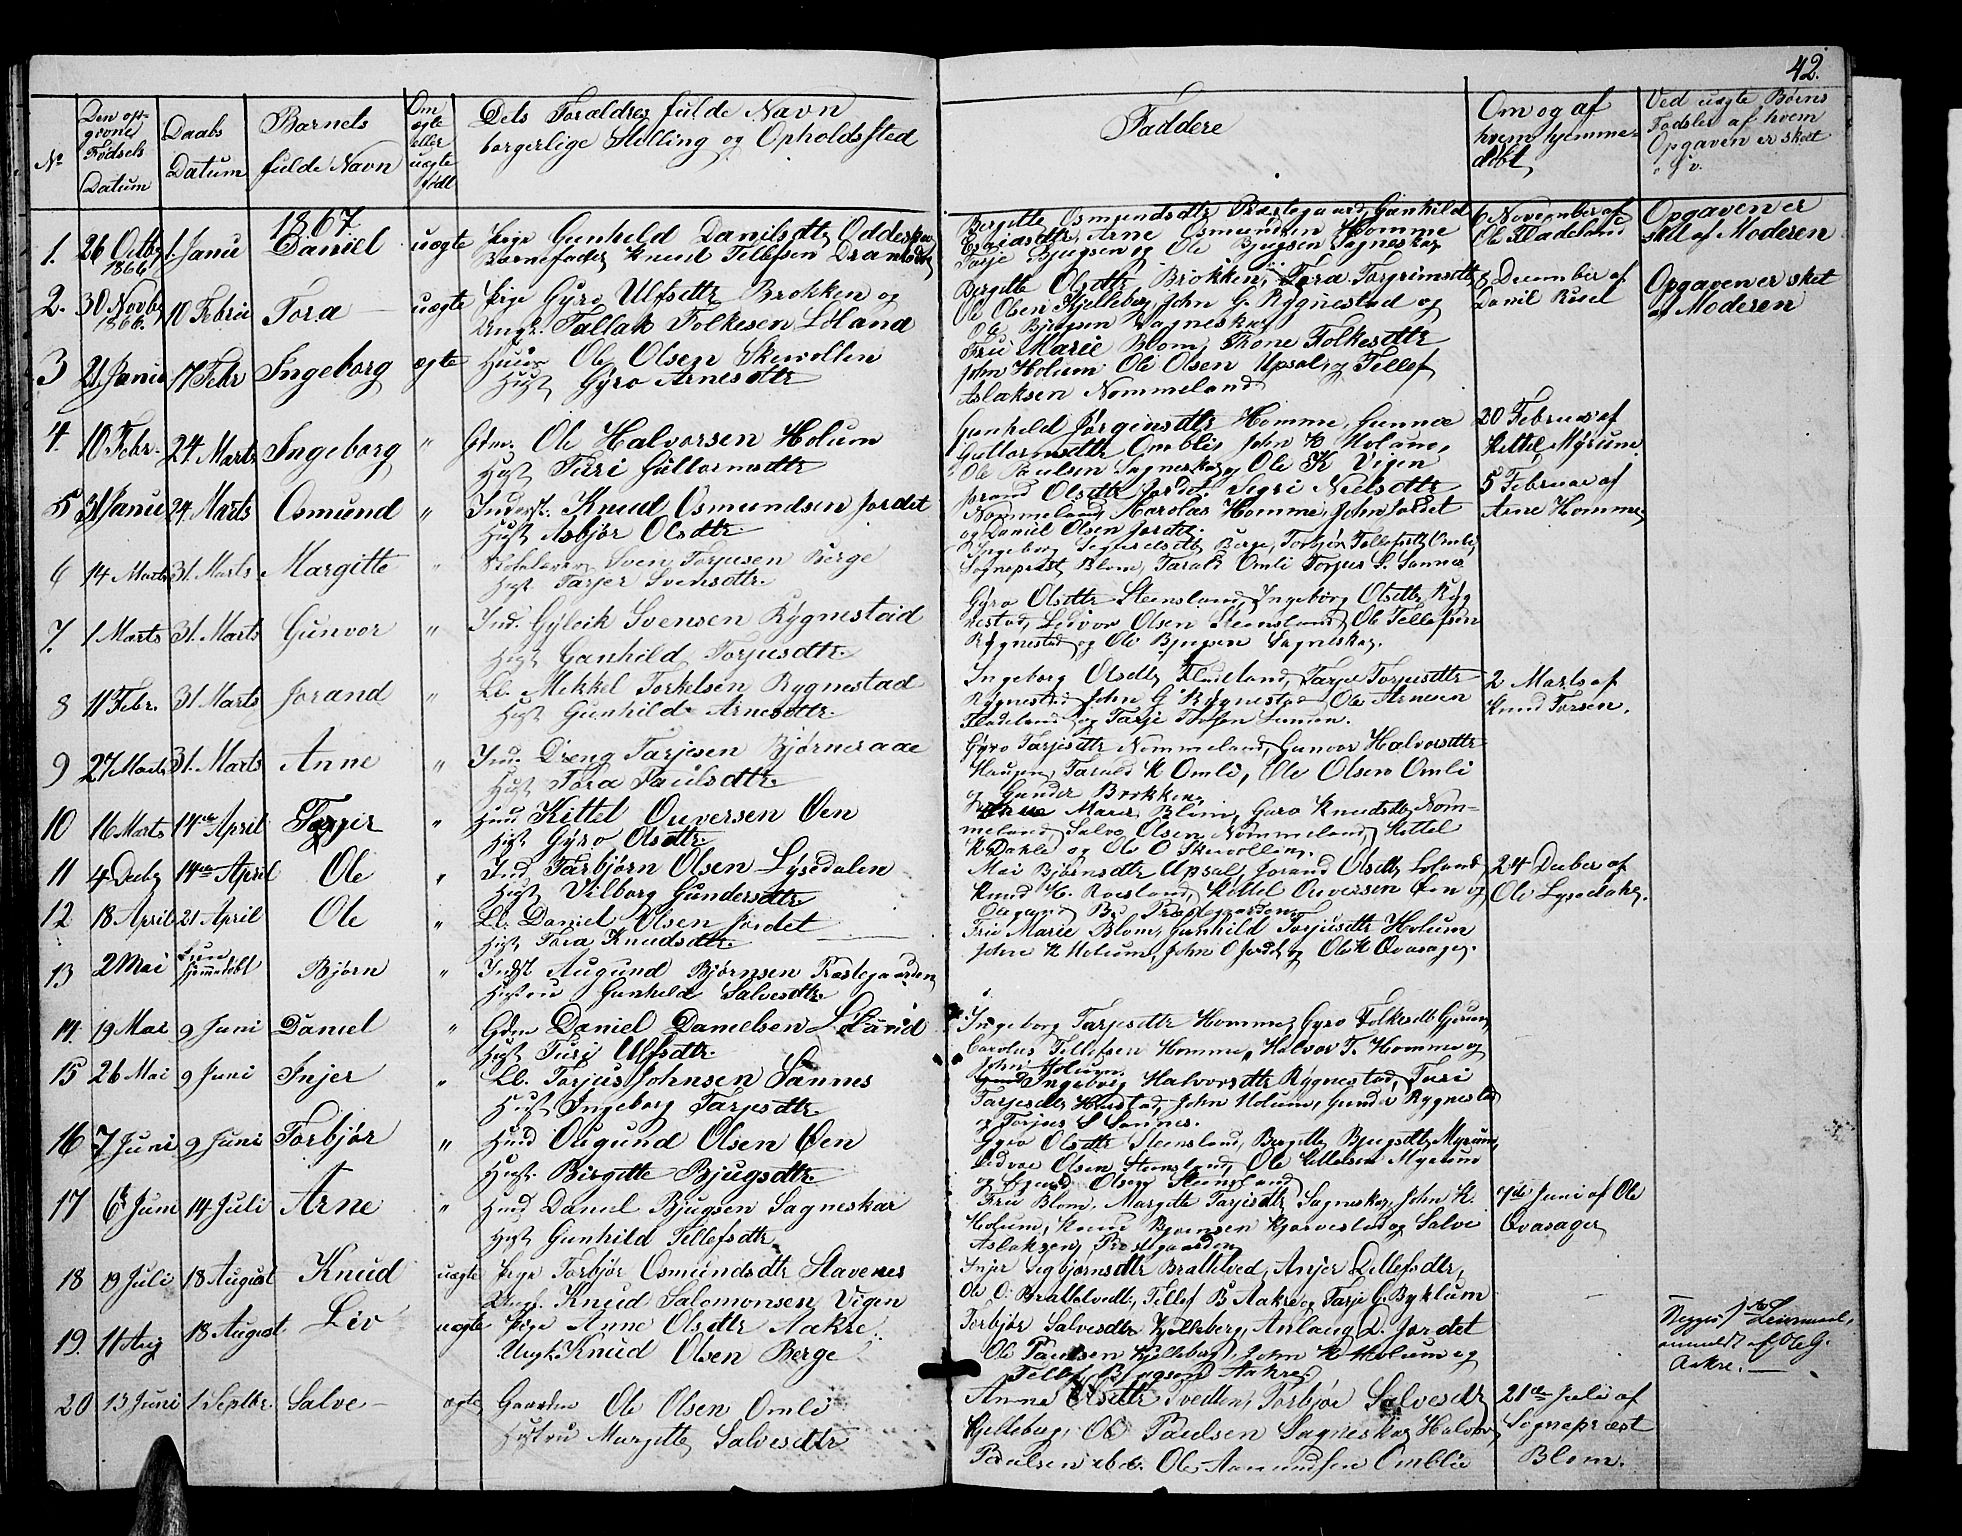 42.
No
Den opgivne Fødsels Datum
Daabs Datum
Barnets fulde Navn
Om ægte eller uægte født
Dets Forældres fulde Navn borgerlige Stilling og Opholdssted
Faddere
Om og af hvem hjemmedøbt
Ved uægte Børns Fødsler af hvem Opgaven er skeet
1867.
1. 26 Octbr 1866 1. Janu Daniel uægte Pige Gunhild Danilsdtr Oddeskar
Barnefader Knud Tellefsen
Bergitte Osmundsdtr Præstegaard, Gunhild
Arne Osmundsen Homme
Tarje Bjugsen og Ole Bjugsen Sagneskar
6 November af
Ole Fladeland
Opgaven er
sket af Moderen
2. 30 Novbr 1866. 10 Febru Tora uægte Pige Gyro Ulfsdtr Brokken og
Ungk. Tallak Folkesen Løland
Bergitte Olsdtr Brokken, Tora Torgrimsdtr
Ole Olsen Kjelleberg, John G. Rygnestad og
Ole Bjugsen Sagneskar
8 December af
Daniel
Opgaven er sket
af Moderen
3 21 Janu 17 Febr Ingeborg ægte Ole Olsen Skevollen
Hust Gyro Arnesdtr
Fru Marie Blom, Tone Folkesdtr
John Holum Ole Olsen Upsal, og Tellef
Aslaksen Nommeland
4. 10 Febr. 24 Marts Ingeborg " Gdm. Ole Halvorsen Holum
Hust Turi Guttormsdtr
Gunhild Jørgensdtr Homme, Gunner
Guttormsdtr Omblie John K Holum,
Ole Paulsen Sagneskar og Ole K Vigen
20 Februar af
Kittel Myrum
5 31 Janu 24 Marts Osmund " Inderst. Knud Osmundsen Jordet
Hust Asbjør Olsdtr
Jorand Olsdtr Jordet, Sigri Nielsdtr
Nommeland, Karolus Homme, John Jordet
og Daniel Olsen Jordet
5 Februar af
Arne Homme
6 14 Marts 31 Marts Margitte " Sven Torjusen Berge
Hust. Tarjer Svensdtr.
Ingeborg Sigurdsdtr Berge, Torbjør Tellefsdtr Omli
Sogneprest Blom, Tarald Omli Torjus S. Sannes
7. 1 Marts 31. Marts Gunvor " Ind. Gyleik Svensen Rygnestad
Hust Gunhild Torjusdtr.
Gyro Olsdtr Steensland, Ingeborg Olsdtr Rygnestad, Eedvor Olsen Steensland, Ole Tellefsen
Rygnestad og Ole Bjugsen Sagneskar.
8 11 Febr. 31 Marts Jorand " Ll. Mikkel Torkelsen Rygnestad
Hust Gunhild Arnesdtr.
Ingeborg Olsdtr Fladeland, Tarjer Torjusdtr
Rygnestad John G Rygnestad Ole Arnesen
Fladeland og Tarje
2 Marts af
Knud Tarsen.
9 27 Marts 31. Marts Anne " Ind. Dreng Tarjesen Bjørneraae
Hust Tora Paulsdtr.
Gyro Tarjesdtr Nommeland, Gunvor Halvorsdtr
Haugen, Tarald K Omli, Ole Olsen Omli
og Gunder Brokken
10 16 Marts 14de April Tarjer " Hmd Kittel Ouversen Øen
Hust Gyro Olsdtr.
Marie Blom, Gyro Knudsdtr Nommeland, Salve Olsen Nommeland, Kittel
K Dahle og Ole O Skevollen.
11 4 Decbr 14de April Ole " Ind Torbjørn Olsen Lysedalen
Hust Vilborg Gundersdtr
Mari Bjørnsdtr Upsal, Jorand Olsdtr Løland,
Knud H. Roesland, Kittel Ouversen Øen og
24 Decber af
Ole Lysedalen
12 18 April 21 April Ole " Ll. Daniel Olsen Jordet
Hust Tora Knudsdtr.
Fru Marie Blom, Gunhild Torjusdtr Holum
John K Holum, John O Jordet og Ole K Qvasager.
13 2 Mai hjemmedøbt Bjørn " Indst Augund Bjørnsen Præstegaarden
Hustru Gunhild Salvesdtr
14. 19 Mai 9 Juni Daniel " Gdm Daniel Danielsen Løland
Hust Turi Ulfsdtr.
Ingeborg Tarjesdtr Homme, Gyro Folkesdtr
Carolus Tellefsen Homme, Halvor T. Homme og
John Holum.
15 26 Mai 9 Juni Injer " Ll. Torjus Johnsen Sannes
Hust Ingeborg Tarjesdtr.
Ingeborg Halvorsdtr Rygnestad, Turi
Tarjesdtr Harstad, John Holum, Gunder Rygnestad
og Torjus S Sannes.
16 7 Juni 9 Juni Torbjør " Hmd Ougund Olsen Øen
Hust. Birgitte Bjugsdtr
Gyro Olsdtr Steensland, Bergitte Bjugsdtr Myrum,
Eedvor Olsen Steensland, Ole Kittelsen Myrum
og Sigurd Olsen Steensland
17 6te Juni 14 Juli Arne " Hmd Daniel Bjugsen Sagneskar
Hust Gunhild Tellefsdtr
Fru Blom, Margitte Tarjesdtr Sagneskar, John K.
Holum, Knud Bjørnsen Kjørvestad og Salve
Aslaksen, Præstgaarden
7de Juni af Ole
Qvasager
18 19 Juli 18 August Knud uægte Pige Torbjør Osmundsdtr Stavenes
Ungk. Knud Salomonsen Vigen
Injer Sigbjørnsdtr Bratteved, Anjer Tellefsdtr,
Ole O. Brattelvedt, Tellef B Aakre og Tarje G. Byklum
19. 11 Aug 18 August Liv uægte Pige Anne Olsdtr Aakre
Ungk. Knud Olsen Berge
Torbjør Salvesdtr Kjelleberg, Anlaug D. Jordet
Ole Paulsen Kjelleberg, John K Holum og
Tellef Bjugsen Aakre
Begges 1ste Leiermaal,
anmeldt af Ole G.
Aakre.
20 13 Juni 1 Septbr. Salve ægte Gaardm Ole Olsen Omli
Hustru Margitte Salvesdtr
Anne Olsdtr Tvedten, Torbjør Salvesdtr
Kjelleberg, Ole Paulsen Sagneskar Halvor
Paulsen ibd. Ole Aamundsen Omblie
21de Juli af
Sogneprest
Blom.